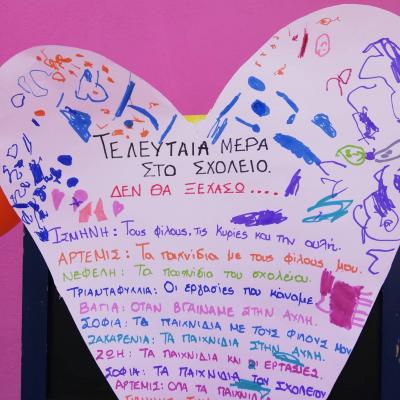 ΤΕΛΕΥΤΑΙΑ ΜΕΡΑ
ΣΤΟ ΣΧΟΛΕΙΟ.
ΔΕΝ ΘΑ ΞΕΧΑΣΩ....
ΙΣΜΗΝΗ: Τους φίλους, τις κυρίες και την αυλή.
ΑΡΤΕΜΙΣ: Τα παιχνίδια με τους φίλους μου.
ΝΕΦΕΛΗ: Τα παιχνίδια του σχολείου.
ΤΡΙΑΝΤΑΦΥΛΛΙΑ: Οι εργασίες που κάναμε.
ΒΑΓΙΑ: ΟΤΑΝ ΒΓΑΙΝΑΜΕ ΣΤΗΝ ΑΥΛΗ.
ΣΟΦΙΑ: ΤΑ ΠΑΙΧΝΙΔΙΑ ΜΕ ΤΟΥΣ ΦΙΛΟΥΣ ΜΟΥ
ΖΑΧΑΡΕΝΙΑ: ΤΑ ΠΑΙΧΝΙΔΙΑ ΣΤΗΝ ΑΥΛΗ.
ΖΩΗ: ΤΑ ΠΑΙΧΝΙΔΙΑ ΚΑΙ ΟΙ ΕΡΓΑΣΙΕΣ.
ΣΟΦΙΑ: ΤΑ ΠΑΙΧΝΙΔΙΑ ΤΟΥ ΣΧΟΛΕΙΟΥ
ΑΡΤΕΜΙΣ: ΟΛΑ ΤΑ ΠΑΙΧΝΙΔΙΑ